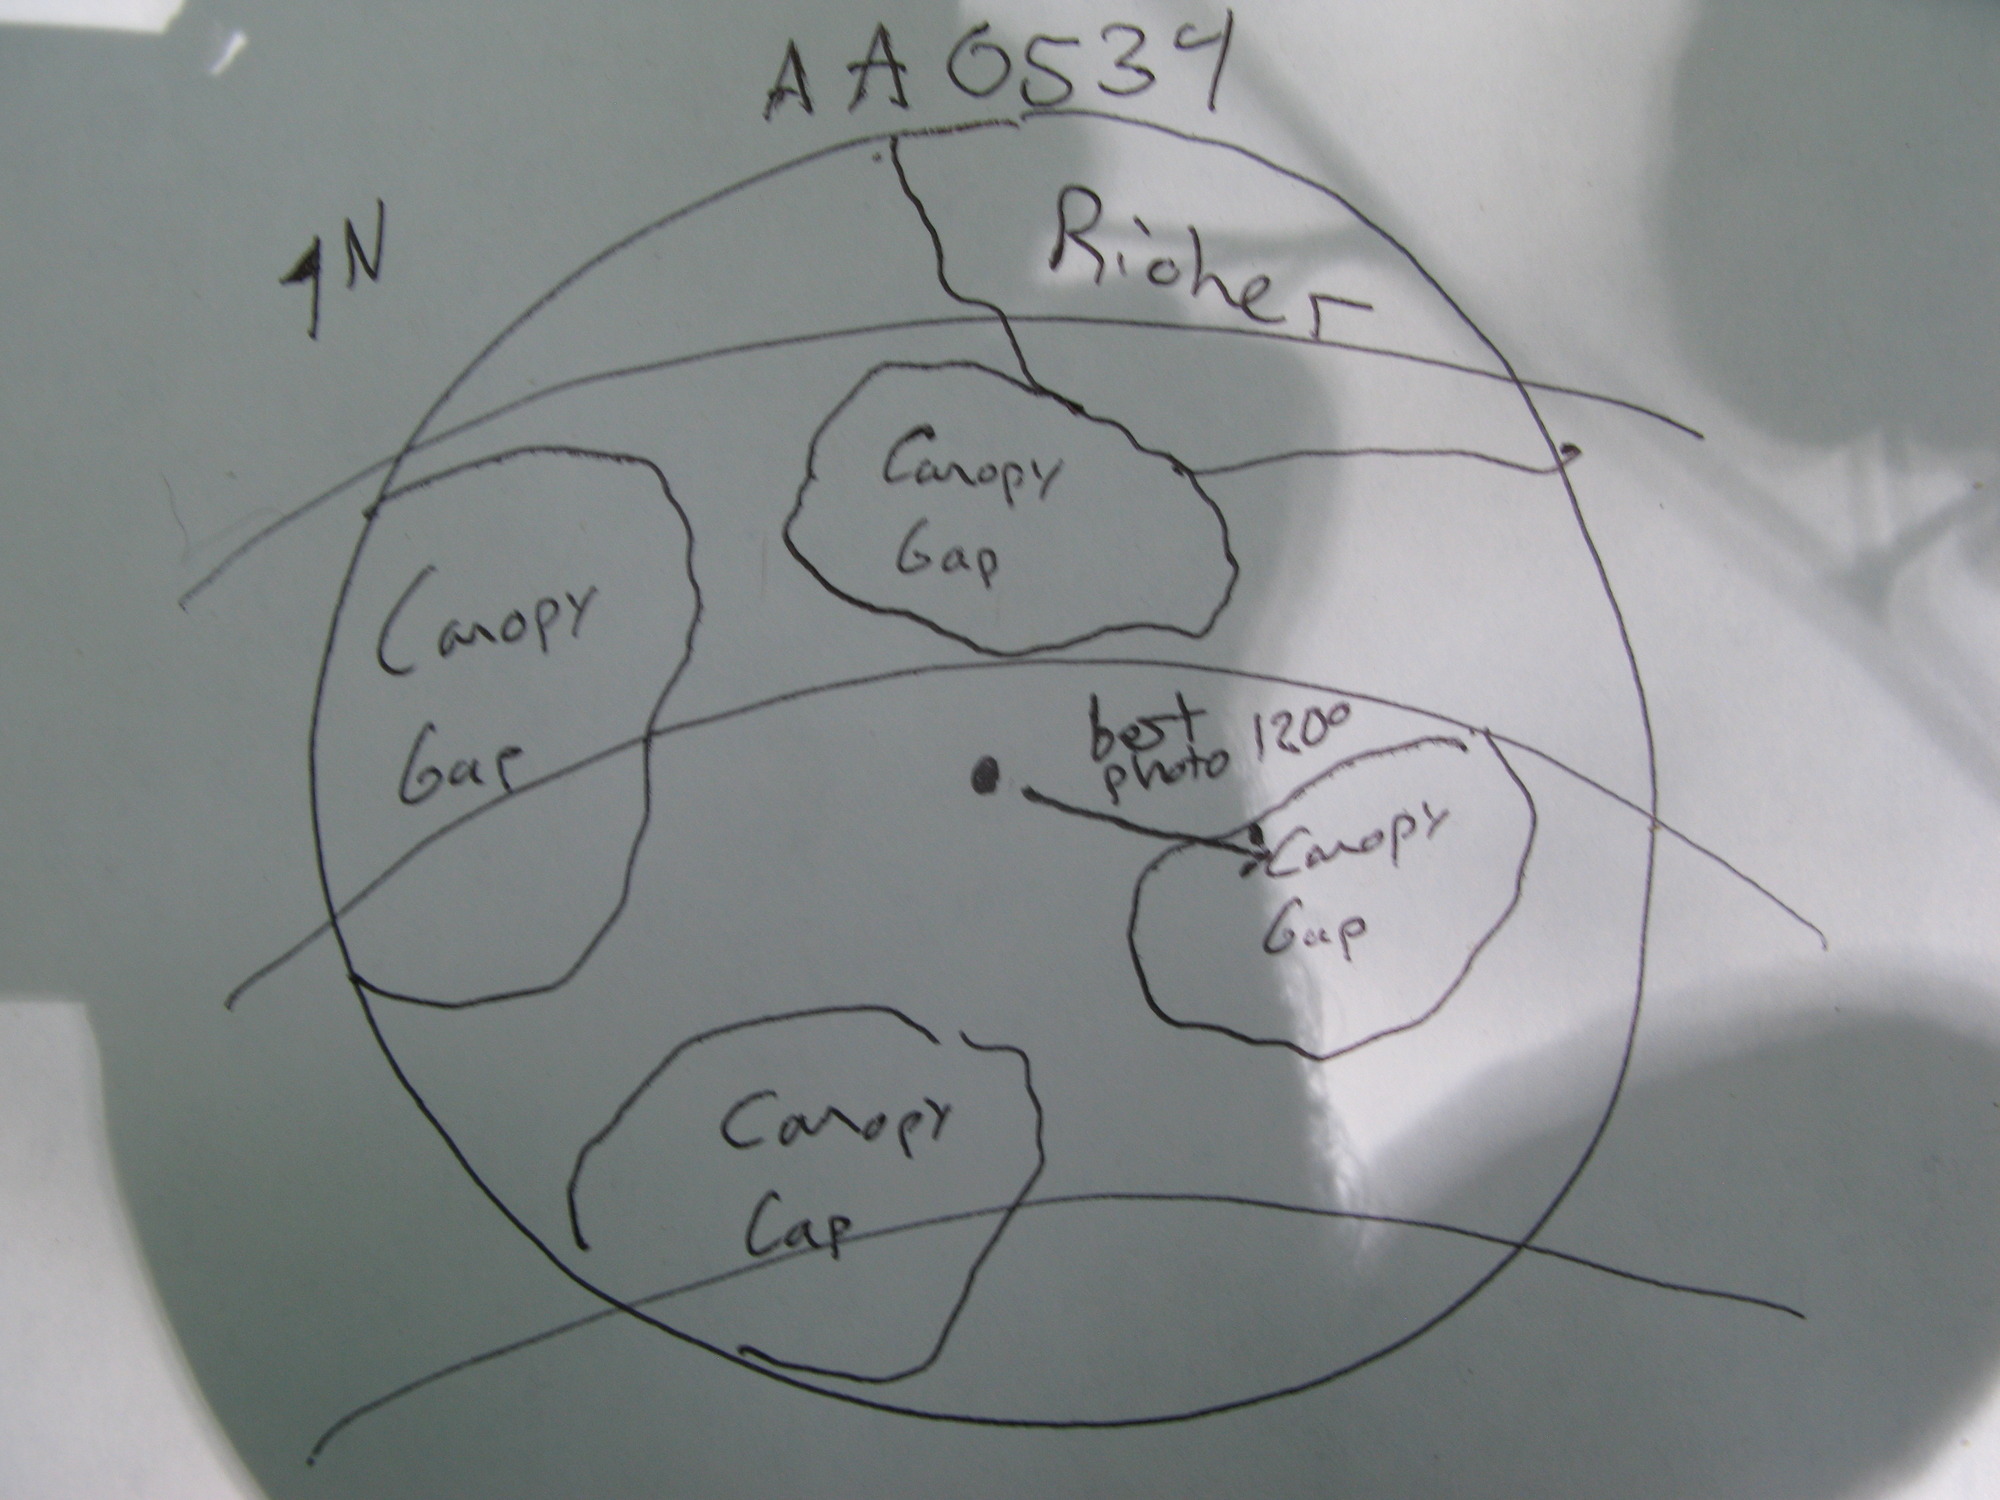 AA0534
N
Richer
Canopy
Gap
Canopy
Gap
best
photo 120°
Canopy
Gap
Canopy
Cap